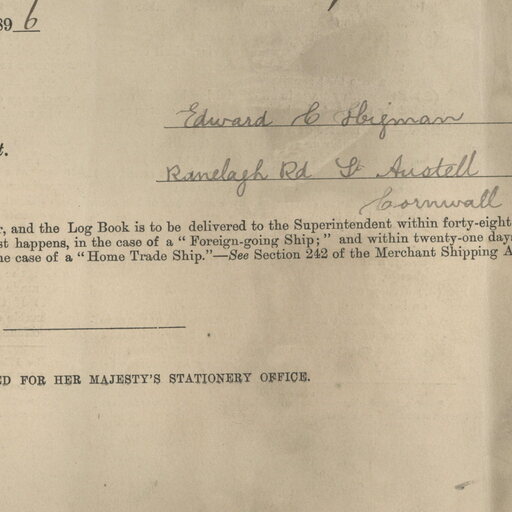 896
Edward C Higman
t.
Ranelagh Rd St Austell
Cornwall
r, and the Log Book is to be delivered to the Superintendent within forty-eight
st happens, in the case of a "Foreign-going Ship;" and within twenty-one days
he case of a "Home Trade Ship."—See Section 242 of the Merchant Shipping A
ED FOR HER MAJESTY'S STATIONERY OFFICE.